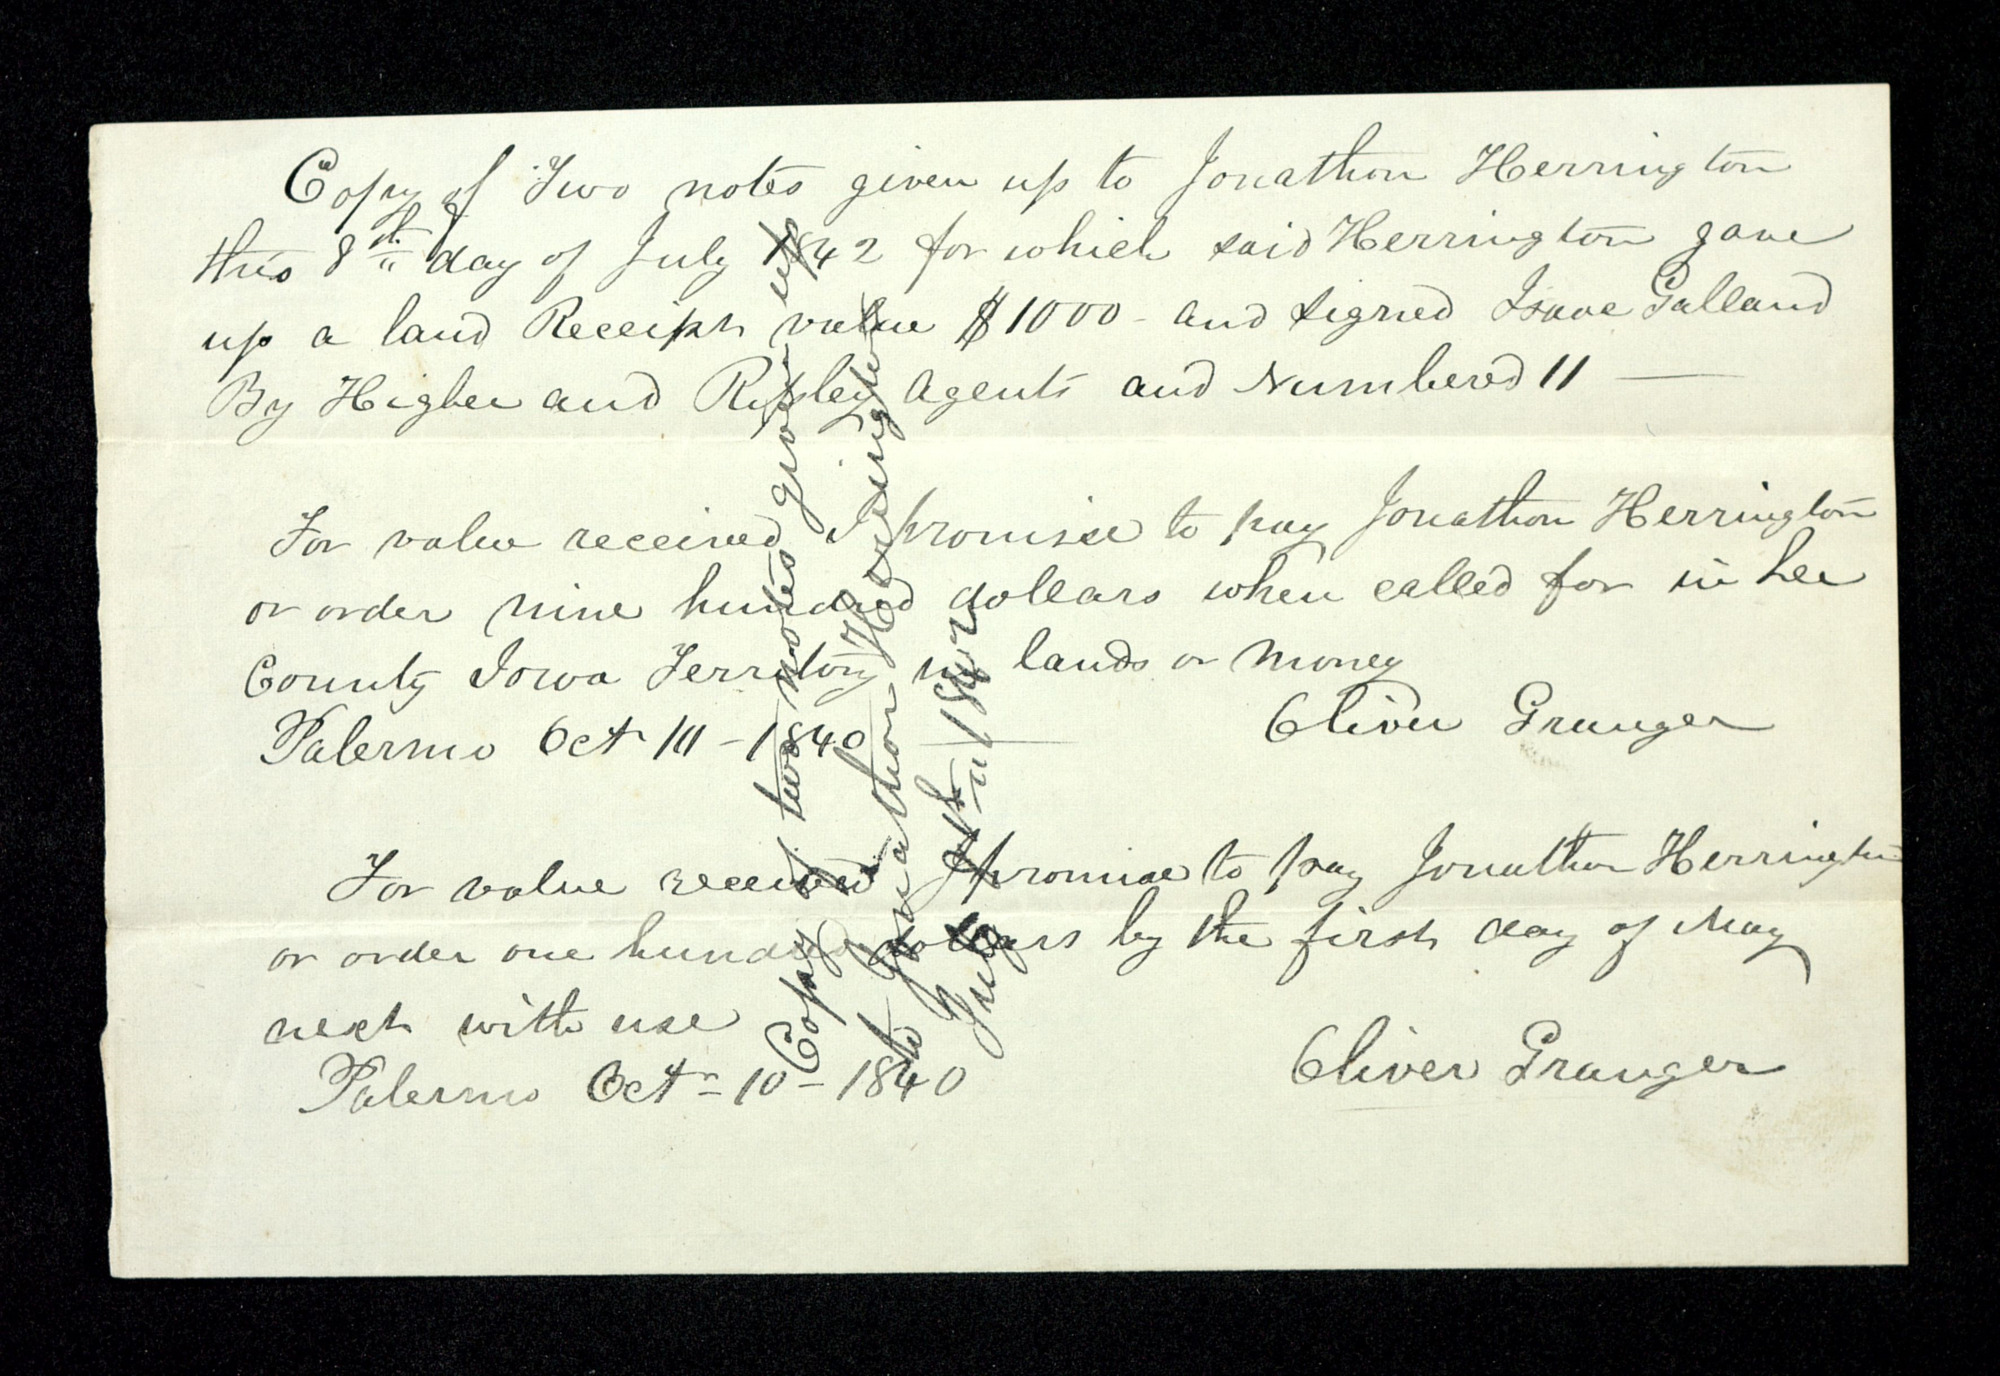 Copy of Two notes given up to Jonathon Herrington
this 8th day of July 1842 for which said Herrington gave
up a land Receipt value $1000 - and signed Isaac Galland
By Higbee and Ripley Agents and Numbered 11 —
For value received I promise to pay Jonathon Herrington
or order nine hundred dollars when called for in Lee
County Iowa Territory in lands or money
Palermo Oct 10 - 1840 — Oliver Granger
For value received I promise to pay Jonathon Herrington
or order one hundred dollars by the first day of May
next with use
Palermo Oct 10 - 1840 Oliver Granger
Copy of two notes given up
to Jonathon Herrington
July 8th 1842